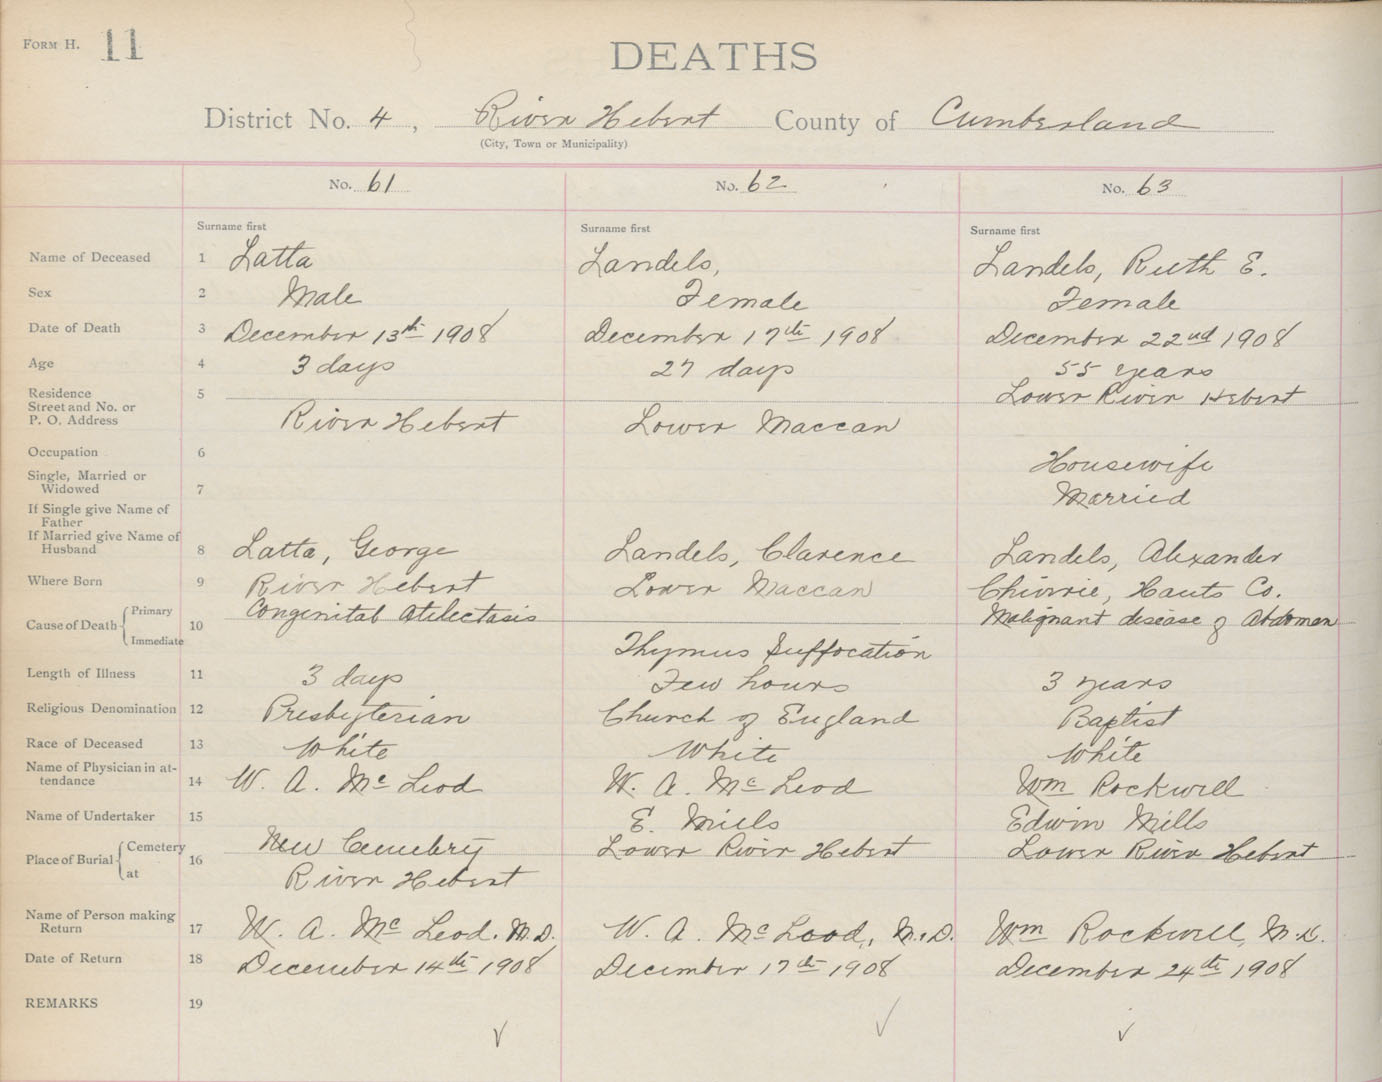 FORM H. 11
DEATHS
District No. 4, River Hebert County of Cumberland
(City, Town or Municipality)
No. 61 No. 62 No. 63
Surname first Surname first Surname first
Name of Deceased 1 Latta Landels, Landels, Ruth E.
Sex 2 Male Female Female
Date of Death 3 December 13th 1908 December 17th 1908 December 22nd 1908
Age 4 3 days 27 days 55 years
Residence 5 Lower River Hebert
Street and No. or
P. O. Address River Hebert Lower Maccan
Occupation 6 Housewife
Single, Married or
Widowed 7 Married
If Single give Name of
Father
If Married give Name of
Husband 8 Latta, George Landels, Clarence Landels, Alexander
Where Born 9 River Hebert Lower Maccan Chiverie, Hants Co.
Cause of Death { Primary 10 Congenital Atelectasis Malignant disease of Abdomen
Immediate Thymus Suffocation
Length of Illness 11 3 days Few hours 3 years
Religious Denomination 12 Presbyterian Church of England Baptist
Race of Deceased 13 White White White
Name of Physician in at-
tendance 14 W. A. Mc Leod W. A. Mc Leod Wm Rockwell
Name of Undertaker 15 E. Mills Edwin Mills
Place of Burial { Cemetery 16 New Cemetery Lower River Hebert Lower River Hebert
at River Hebert
Name of Person making
Return 17 W. A. Mc Leod. M.D. W. A. Mc Leod, M.D. Wm Rockwell, M.D.
Date of Return 18 December 14th 1908 December 17th 1908 December 24th 1908
REMARKS 19